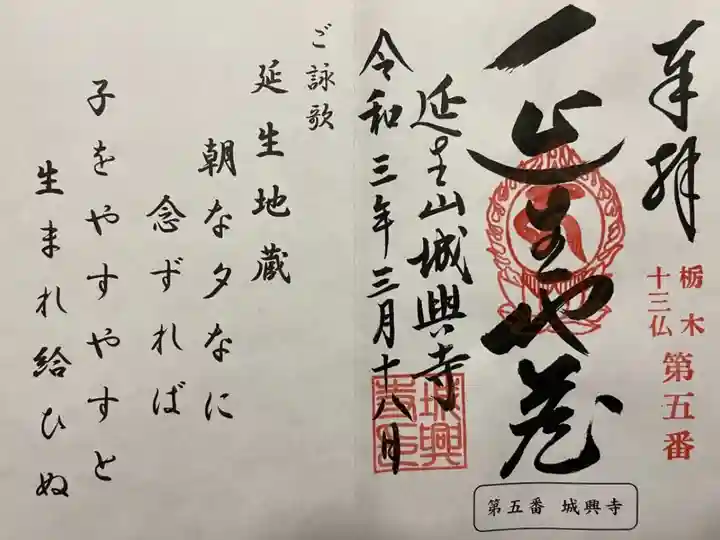 奉拝
栃木
十三仏
第五番
延生地蔵
延生山城興寺
令和三年三月十八日
城興寺印
第五番 城興寺
ご詠歌
延生地蔵
朝な夕なに
念ずれば
子をやすやすと
生まれ給ひぬ